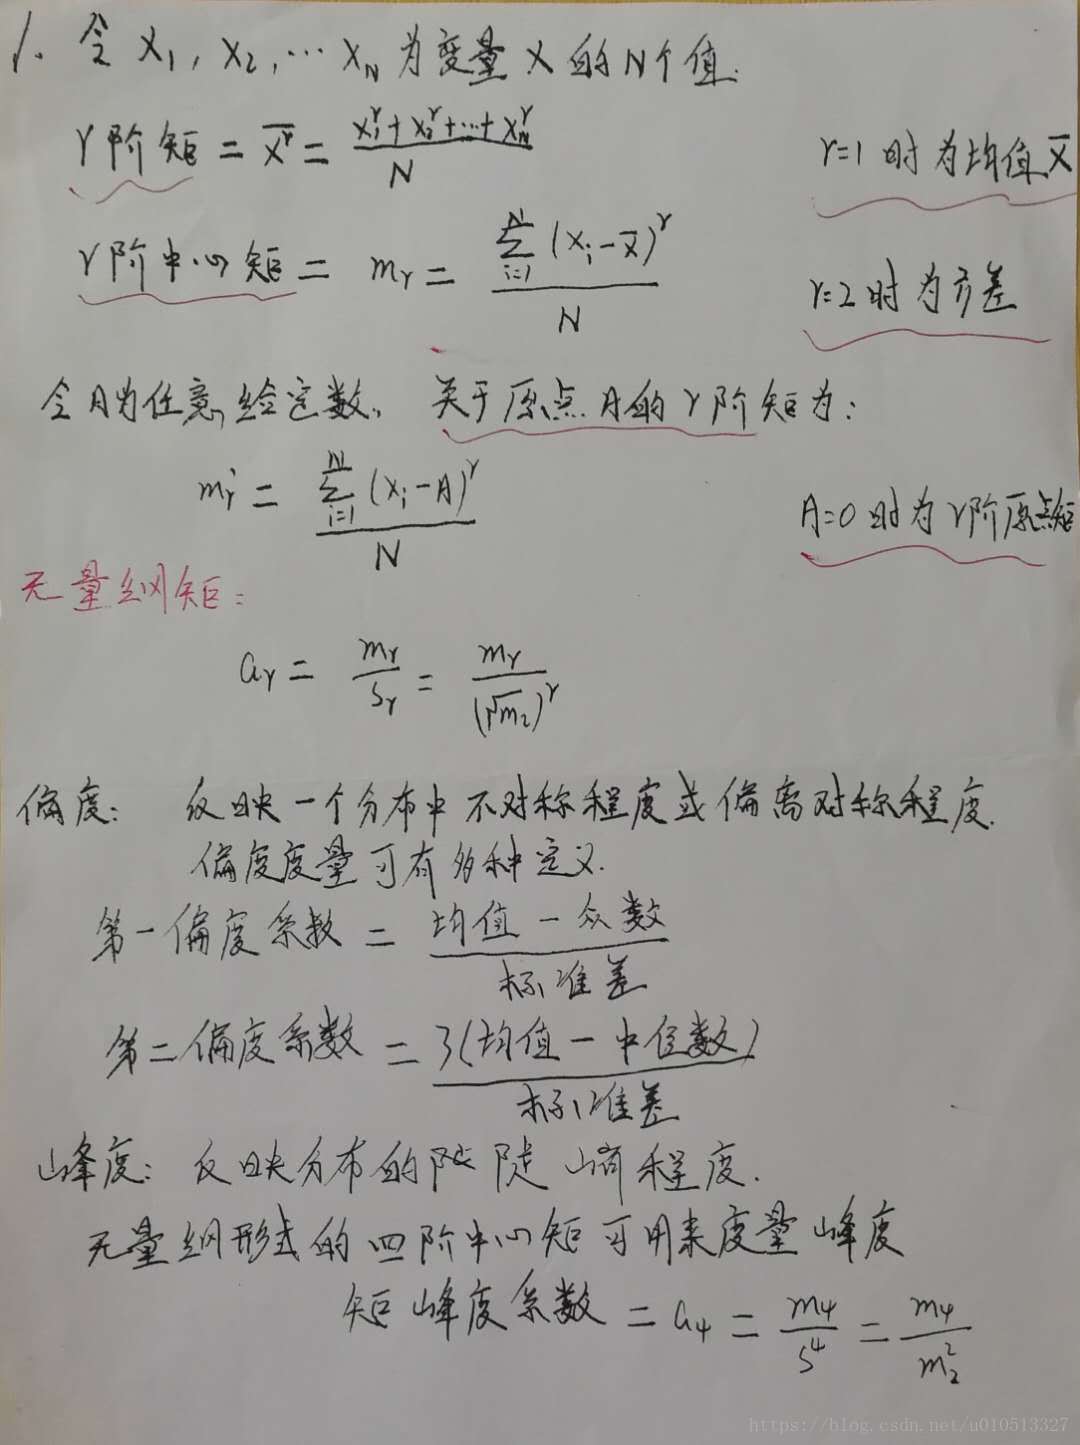 1. 令 X₁, X₂, … X_N 为变量 X 的 N个值.
r阶矩 = X̄ʳ = (X₁ʳ + X₂ʳ + … + X_Nʳ) / N
r=1 时为均值 X̄
r阶中心矩 = m_r = Σ_{i=1}^{N} (X_i − X̄)ʳ / N
r=2 时为方差
令A为任意给定数, 关于原点A的r阶矩为:
m'_r = Σ_{i=1}^{N} (X_i − A)ʳ / N
A=0 时为r阶原点矩
无量纲矩:
a_r = m_r / S_r = m_r / (√m₂)ʳ
偏度: 反映一个分布中不对称程度或偏离对称程度.
偏度度量可有多种定义.
第一偏度系数 = (均值 − 众数) / 标准差
第二偏度系数 = 3(均值 − 中位数) / 标准差
峰度: 反映分布的陡峭程度.
无量纲形式的四阶中心矩可用来度量峰度
矩峰度系数 = a₄ = m₄ / S⁴ = m₄ / m₂²
https://blog.csdn.net/u010513327